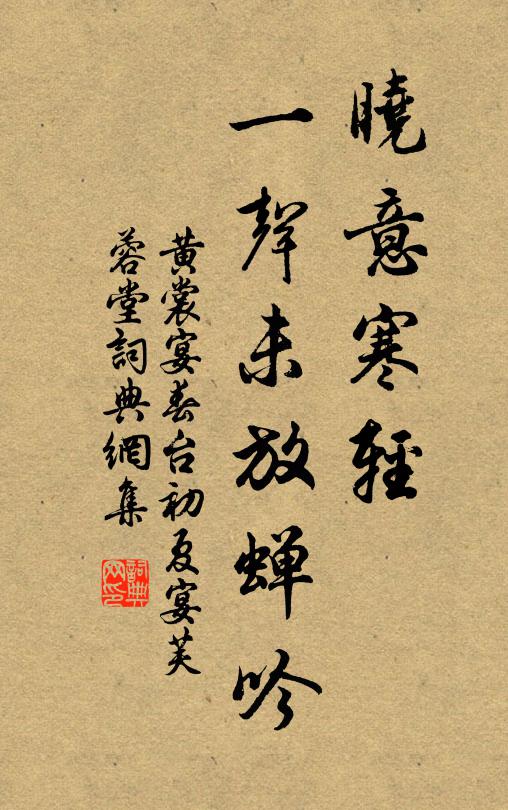 曉意寒輕
一聲未放蝉吟
黄裳宴春台初夏宴芙
蓉堂詞典網集
詞典
网印